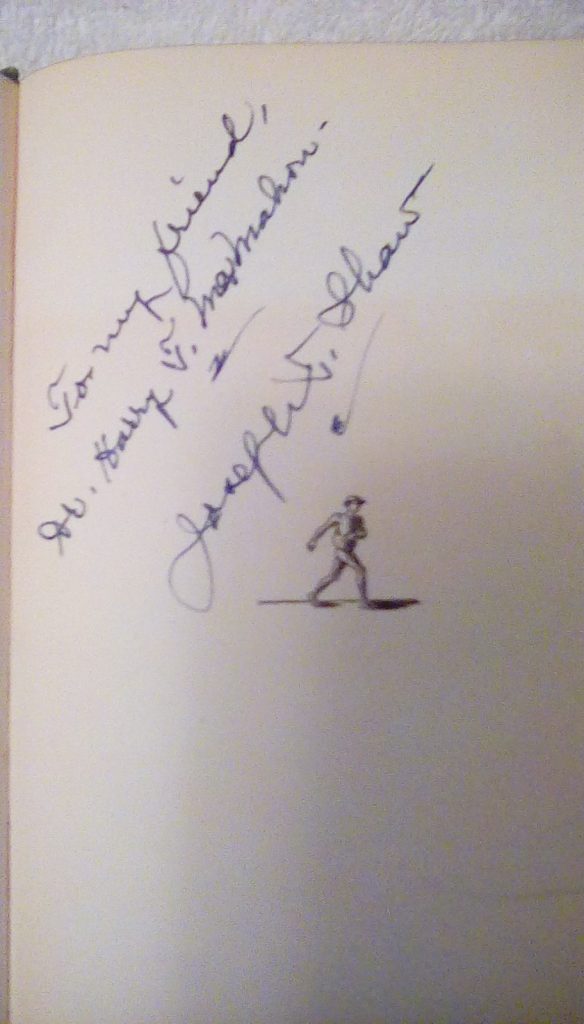 To my friend,
Dr. Harry T. MacMahon -
Joseph T. Shaw